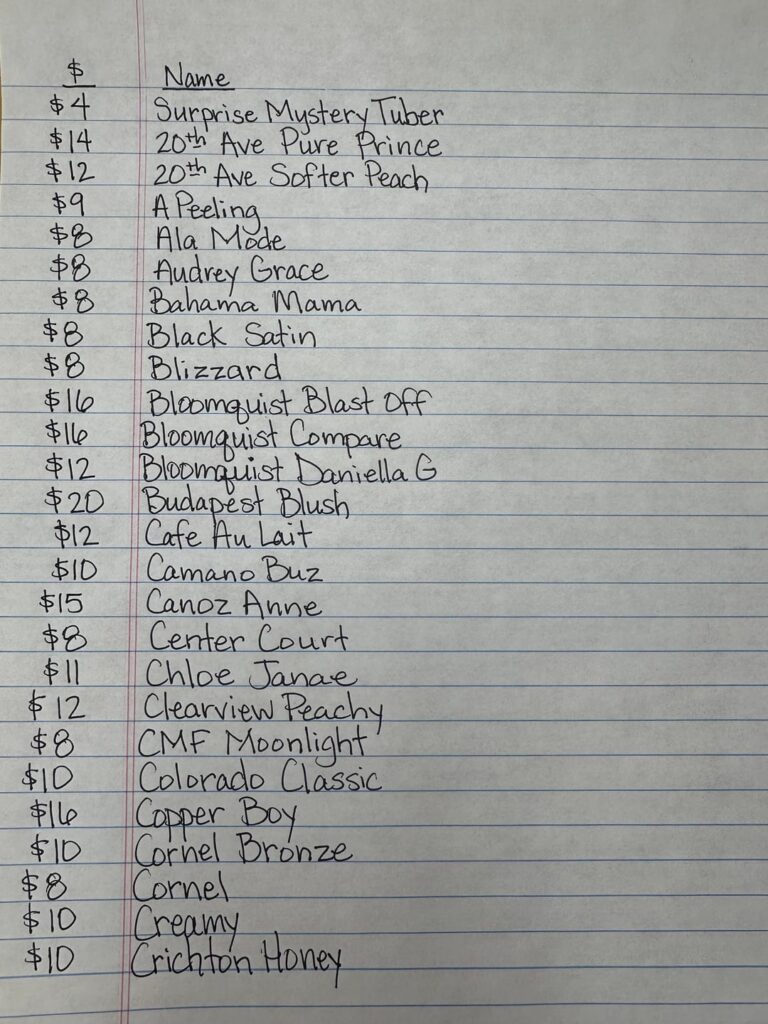 $ Name
$4 Surprise Mystery Tuber
$14 20th Ave Pure Prince
$12 20th Ave Softer Peach
$9 A Peeling
$8 Ala Mode
$8 Audrey Grace
$8 Bahama Mama
$8 Black Satin
$8 Blizzard
$16 Bloomquist Blast Off
$16 Bloomquist Compare
$12 Bloomquist Daniella G
$20 Budapest Blush
$12 Cafe Au Lait
$10 Camano Buz
$15 Canoz Anne
$8 Center Court
$11 Chloe Janae
$12 Clearview Peachy
$8 CMF Moonlight
$10 Colorado Classic
$16 Copper Boy
$10 Cornel Bronze
$8 Cornel
$10 Creamy
$10 Crichton Honey